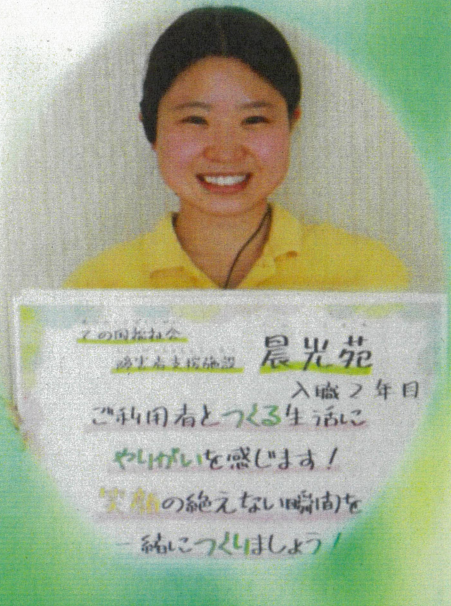 障害者支援施設 晨光苑
入職2年目
ご利用者とつくる生活に
やりがいを感じます!
笑顔の絶えない瞬間を
一緒につくりましょう!